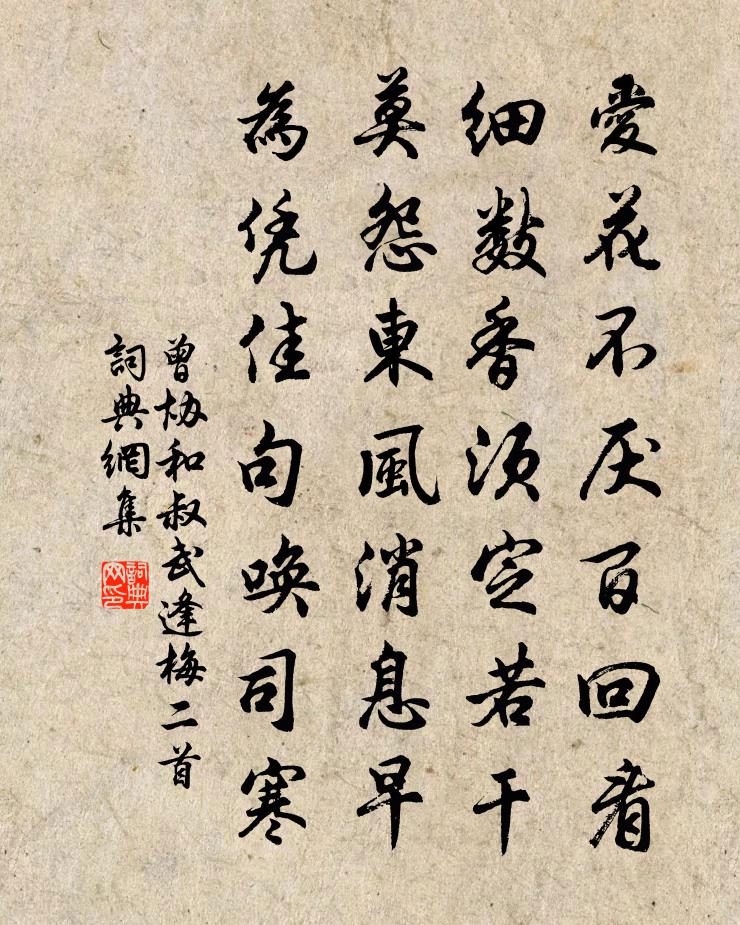 愛花不厌百回看
細數香須定若干
莫怨東風消息早
為凭佳句唤司寒
曾协和叔武逢梅二首
詞典網集
詞典网印